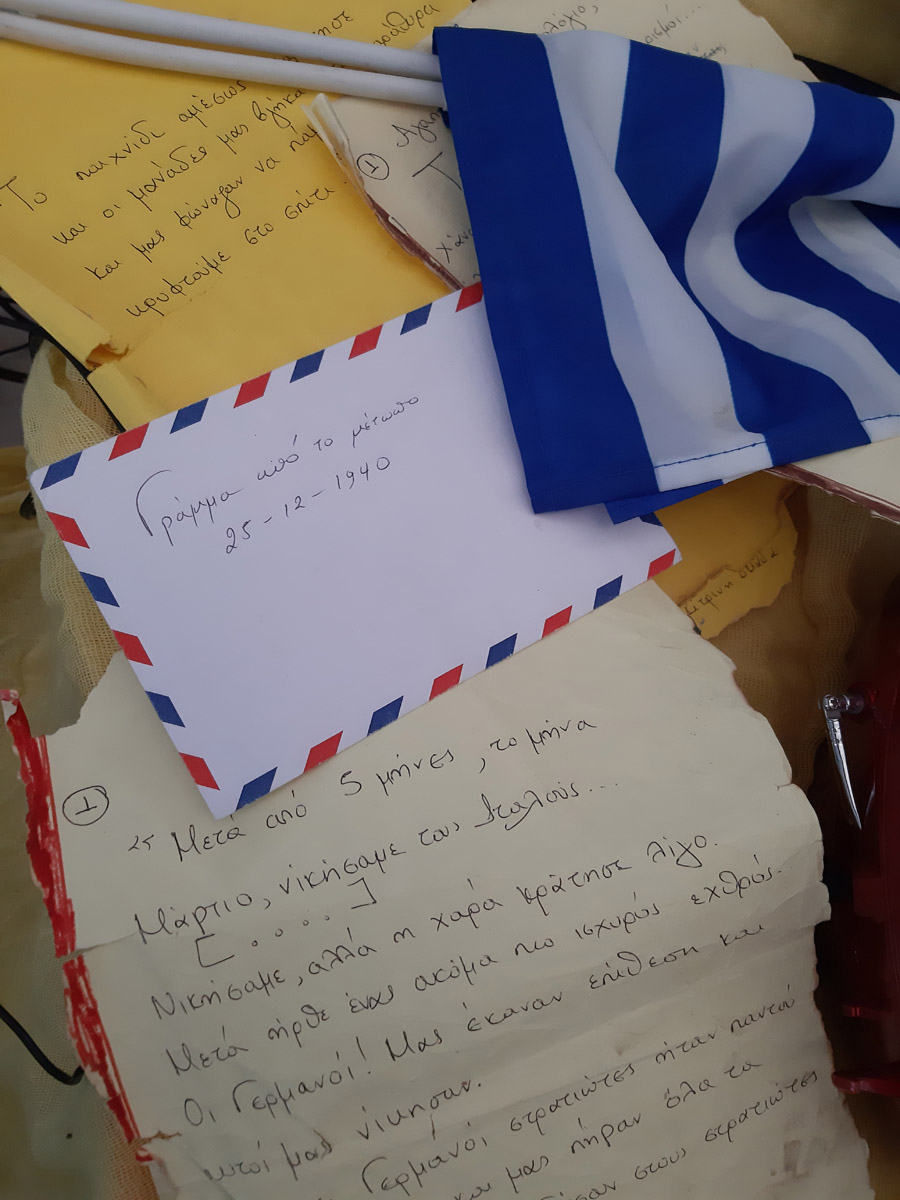 Το παιχνίδι αμέσως
και οι μονάδες μας βγήκα
και μας φώναγαν να πάμ
κρυφτούμε στο σπίτι.
λόγιο,
Αγαπ
Τ
χάνα
Γράμμα από το μέτωπο
25-12-1940
Κίτρινη
"Μετά από 5 μήνες, το μήνα
Μάρτιο, νικήσαμε τους Ιταλούς...
[....]
Νικήσαμε, αλλά η χαρά κράτησε λίγο.
Μετά ήρθε ένας ακόμα πιο ισχυρός εχθρός.
Οι Γερμανοί! Μας έκαναν επίθεση και
αυτοί μας νίκησαν.
Γερμανοί στρατιώτες ήταν παντού
και μας πήραν όλα τα
στους στρατιώτες